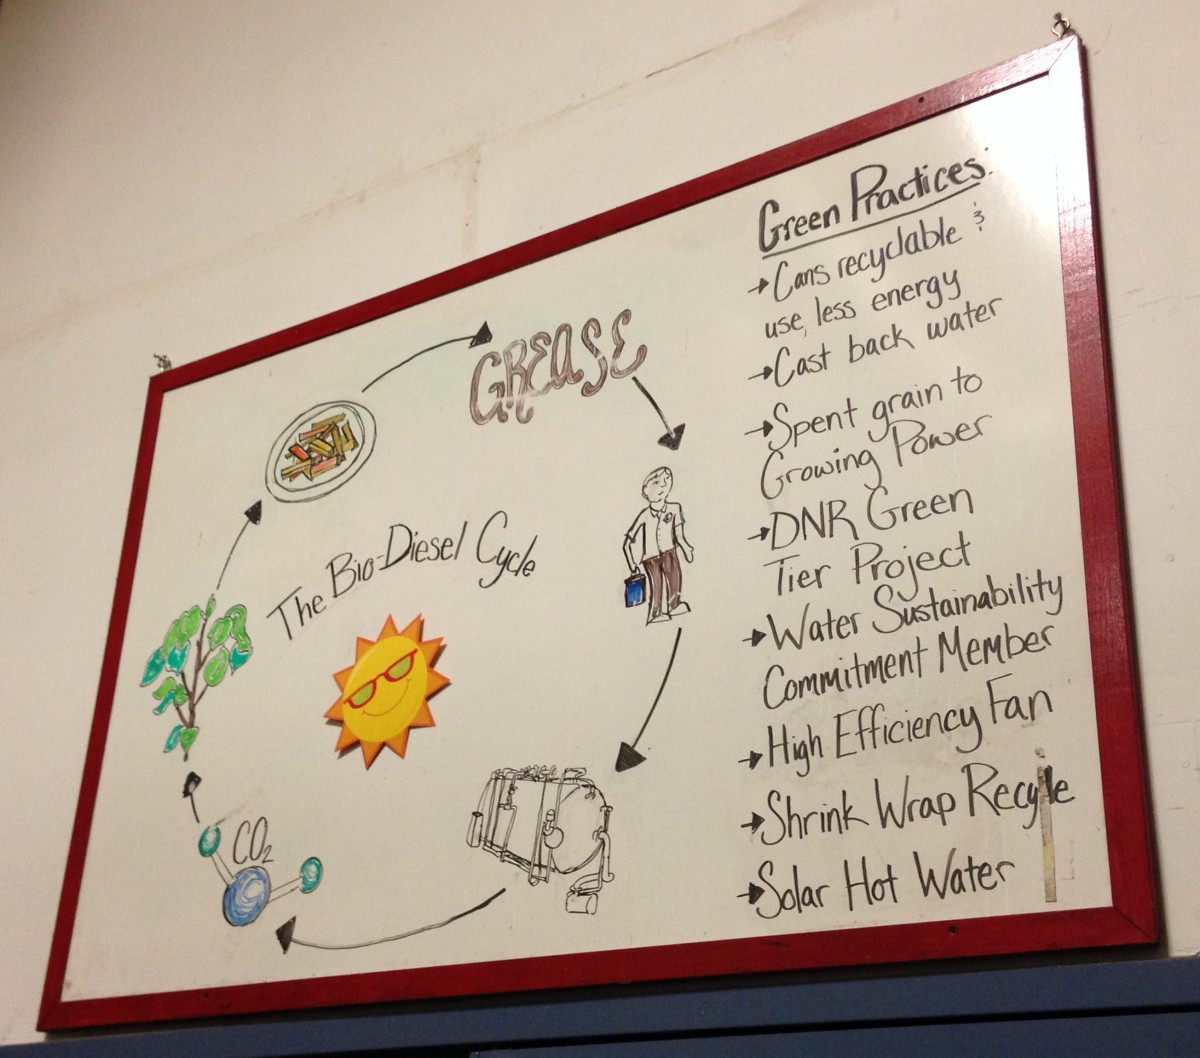 GREASE
The Bio-Diesel Cycle
CO2
Green Practices:
→Cans recyclable &
use less energy
→Cast back water
→Spent grain to
Growing Power
→DNR Green
Tier Project
→Water Sustainability
Commitment Member
→High Efficiency Fan
→Shrink Wrap Recycle
→Solar Hot Water